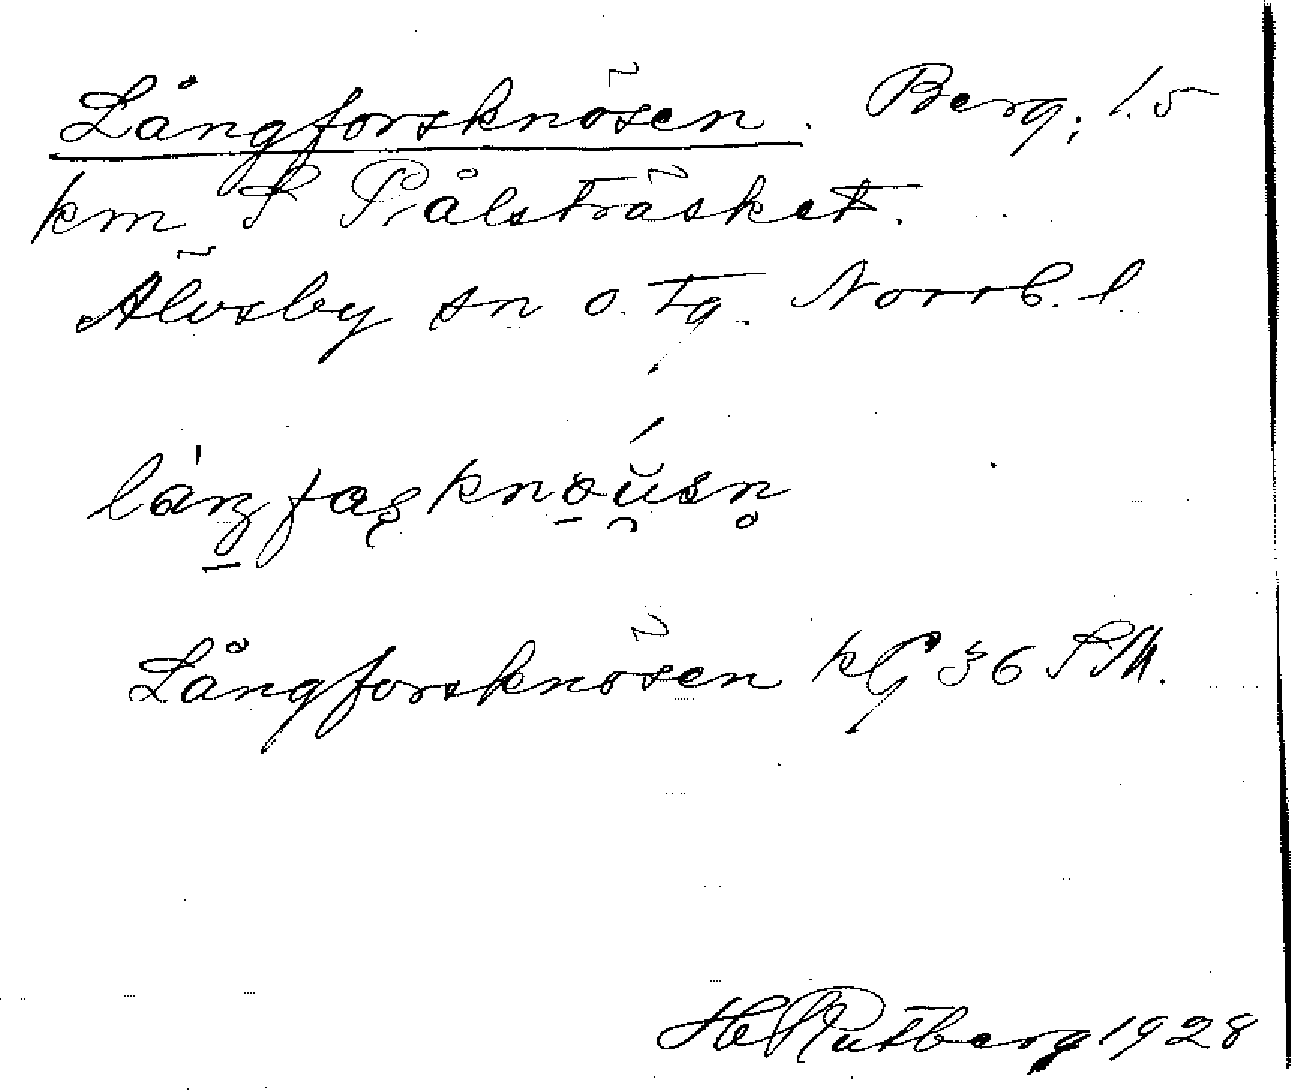 Långforsknösen. Berg; 1.5
km S Pålsträsket.
Älvsby sn o. tg. Norrb. l.
Långforsknösen kG 36 SSM.
Rutberg 1928